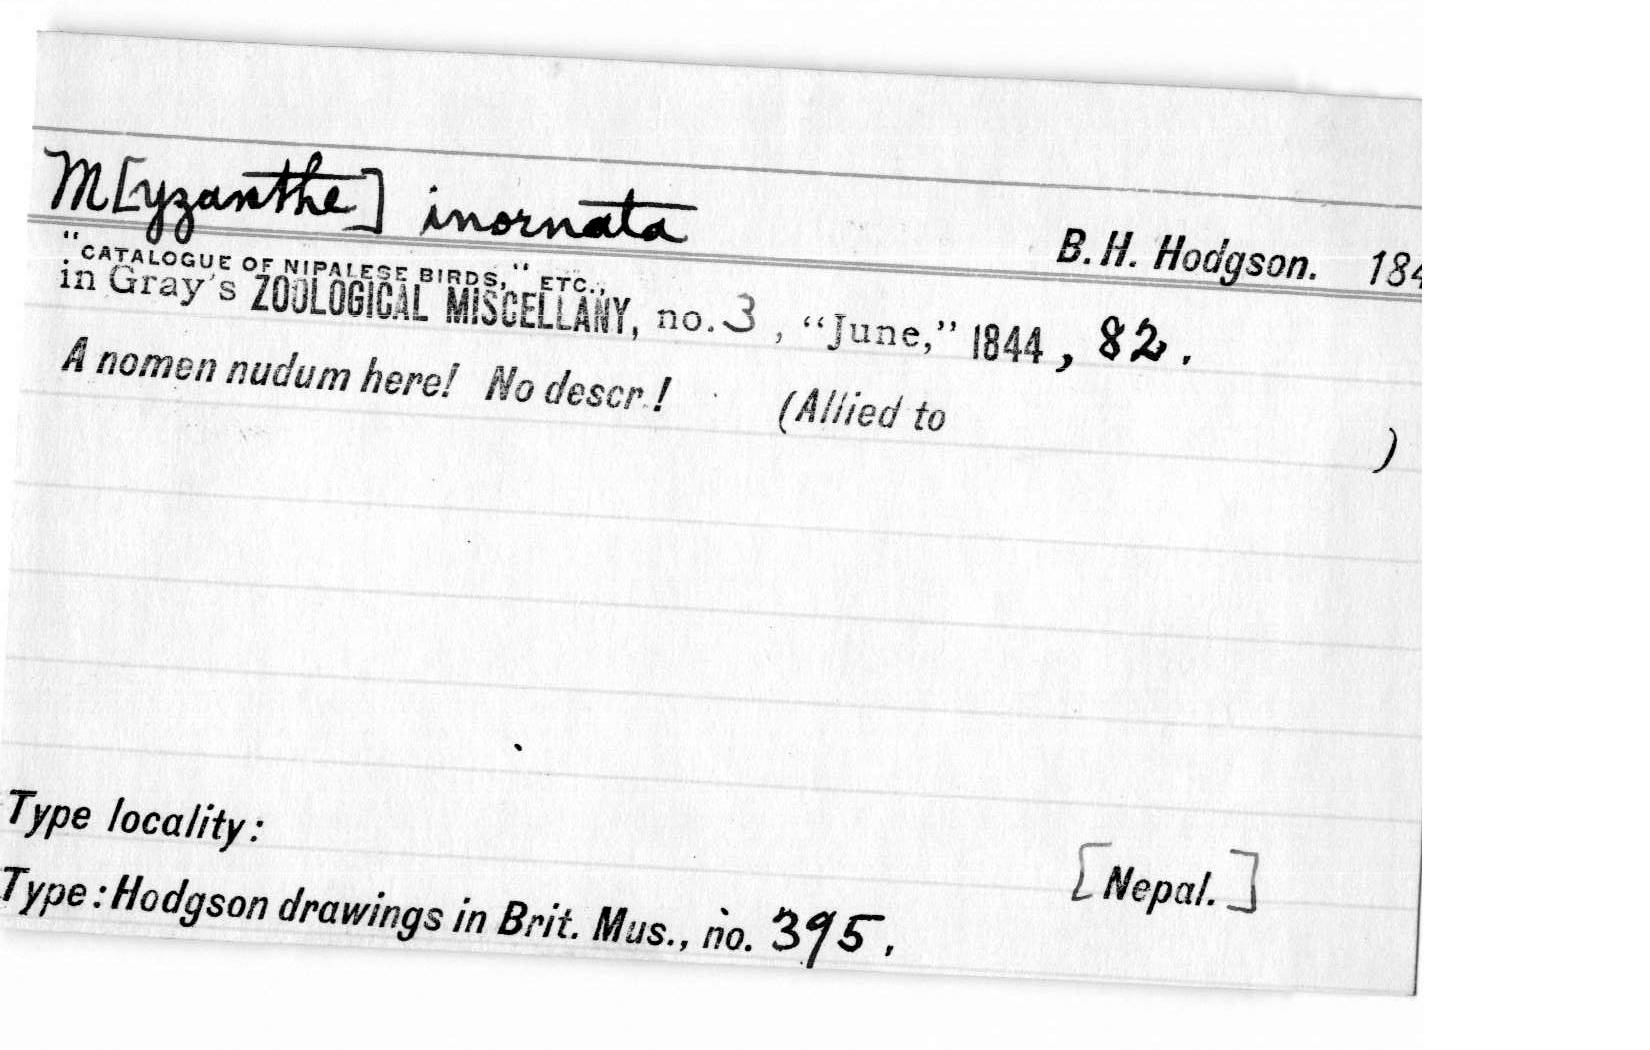 M[yzanthe] inornata
B. H. Hodgson. 184
"CATALOGUE OF NIPALESE BIRDS," ETC.,
in Gray's ZOOLOGICAL MISCELLANY, no. 3, "June," 1844, 82.
A nomen nudum here! No descr.! (Allied to )
Type locality: [Nepal.]
Type: Hodgson drawings in Brit. Mus., no. 395.